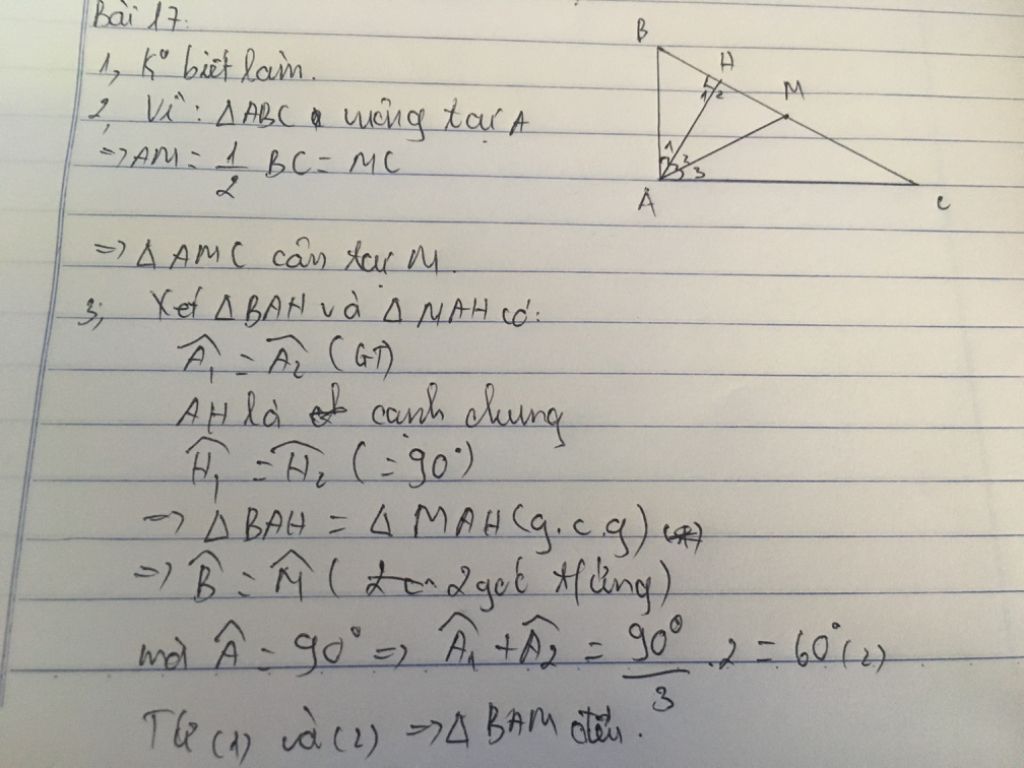 Bài 17.
1, K° biết làm.
2, Vì: ΔABC vuông tại A
=> AM = 1/2 BC = MC
=> Δ AMC cân tại M.
3; Xét ΔBAH và Δ MAH có:
Â₁ = Â₂ (GT)
AH là cạnh chung
Ĥ₁ = Ĥ₂ (= 90°)
=> Δ BAH = Δ MAH (g.c.g)
=> B̂ = M̂ ( 2 góc tứ ứng)
mà Â = 90° => Â₁ + Â₂ = 90°/3 . 2 = 60° (2)
Từ (1) và (2) => Δ BAM đều.
B
H
M
1 2
1 2 3
A
C